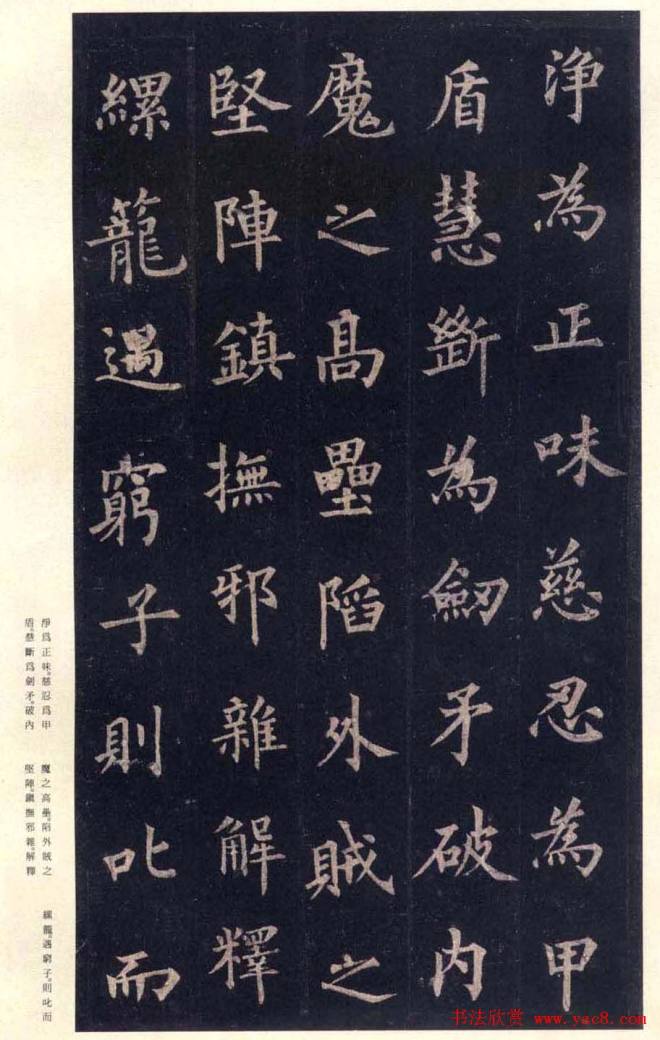 淨為正味慈忍為甲
盾慧斷為劒矛破内
魔之高壘陷外賊之
堅陣鎮撫邪雜解釋
縲籠遇窮子則叱而
淨為正味。慈忍為甲
盾。慧斷為劍矛。破内
魔之高壘。陷外賊之
堅陣。鎮撫邪雜。解釋
縲籠。遇窮子。則叱而
书法欣赏 www.yac8.com